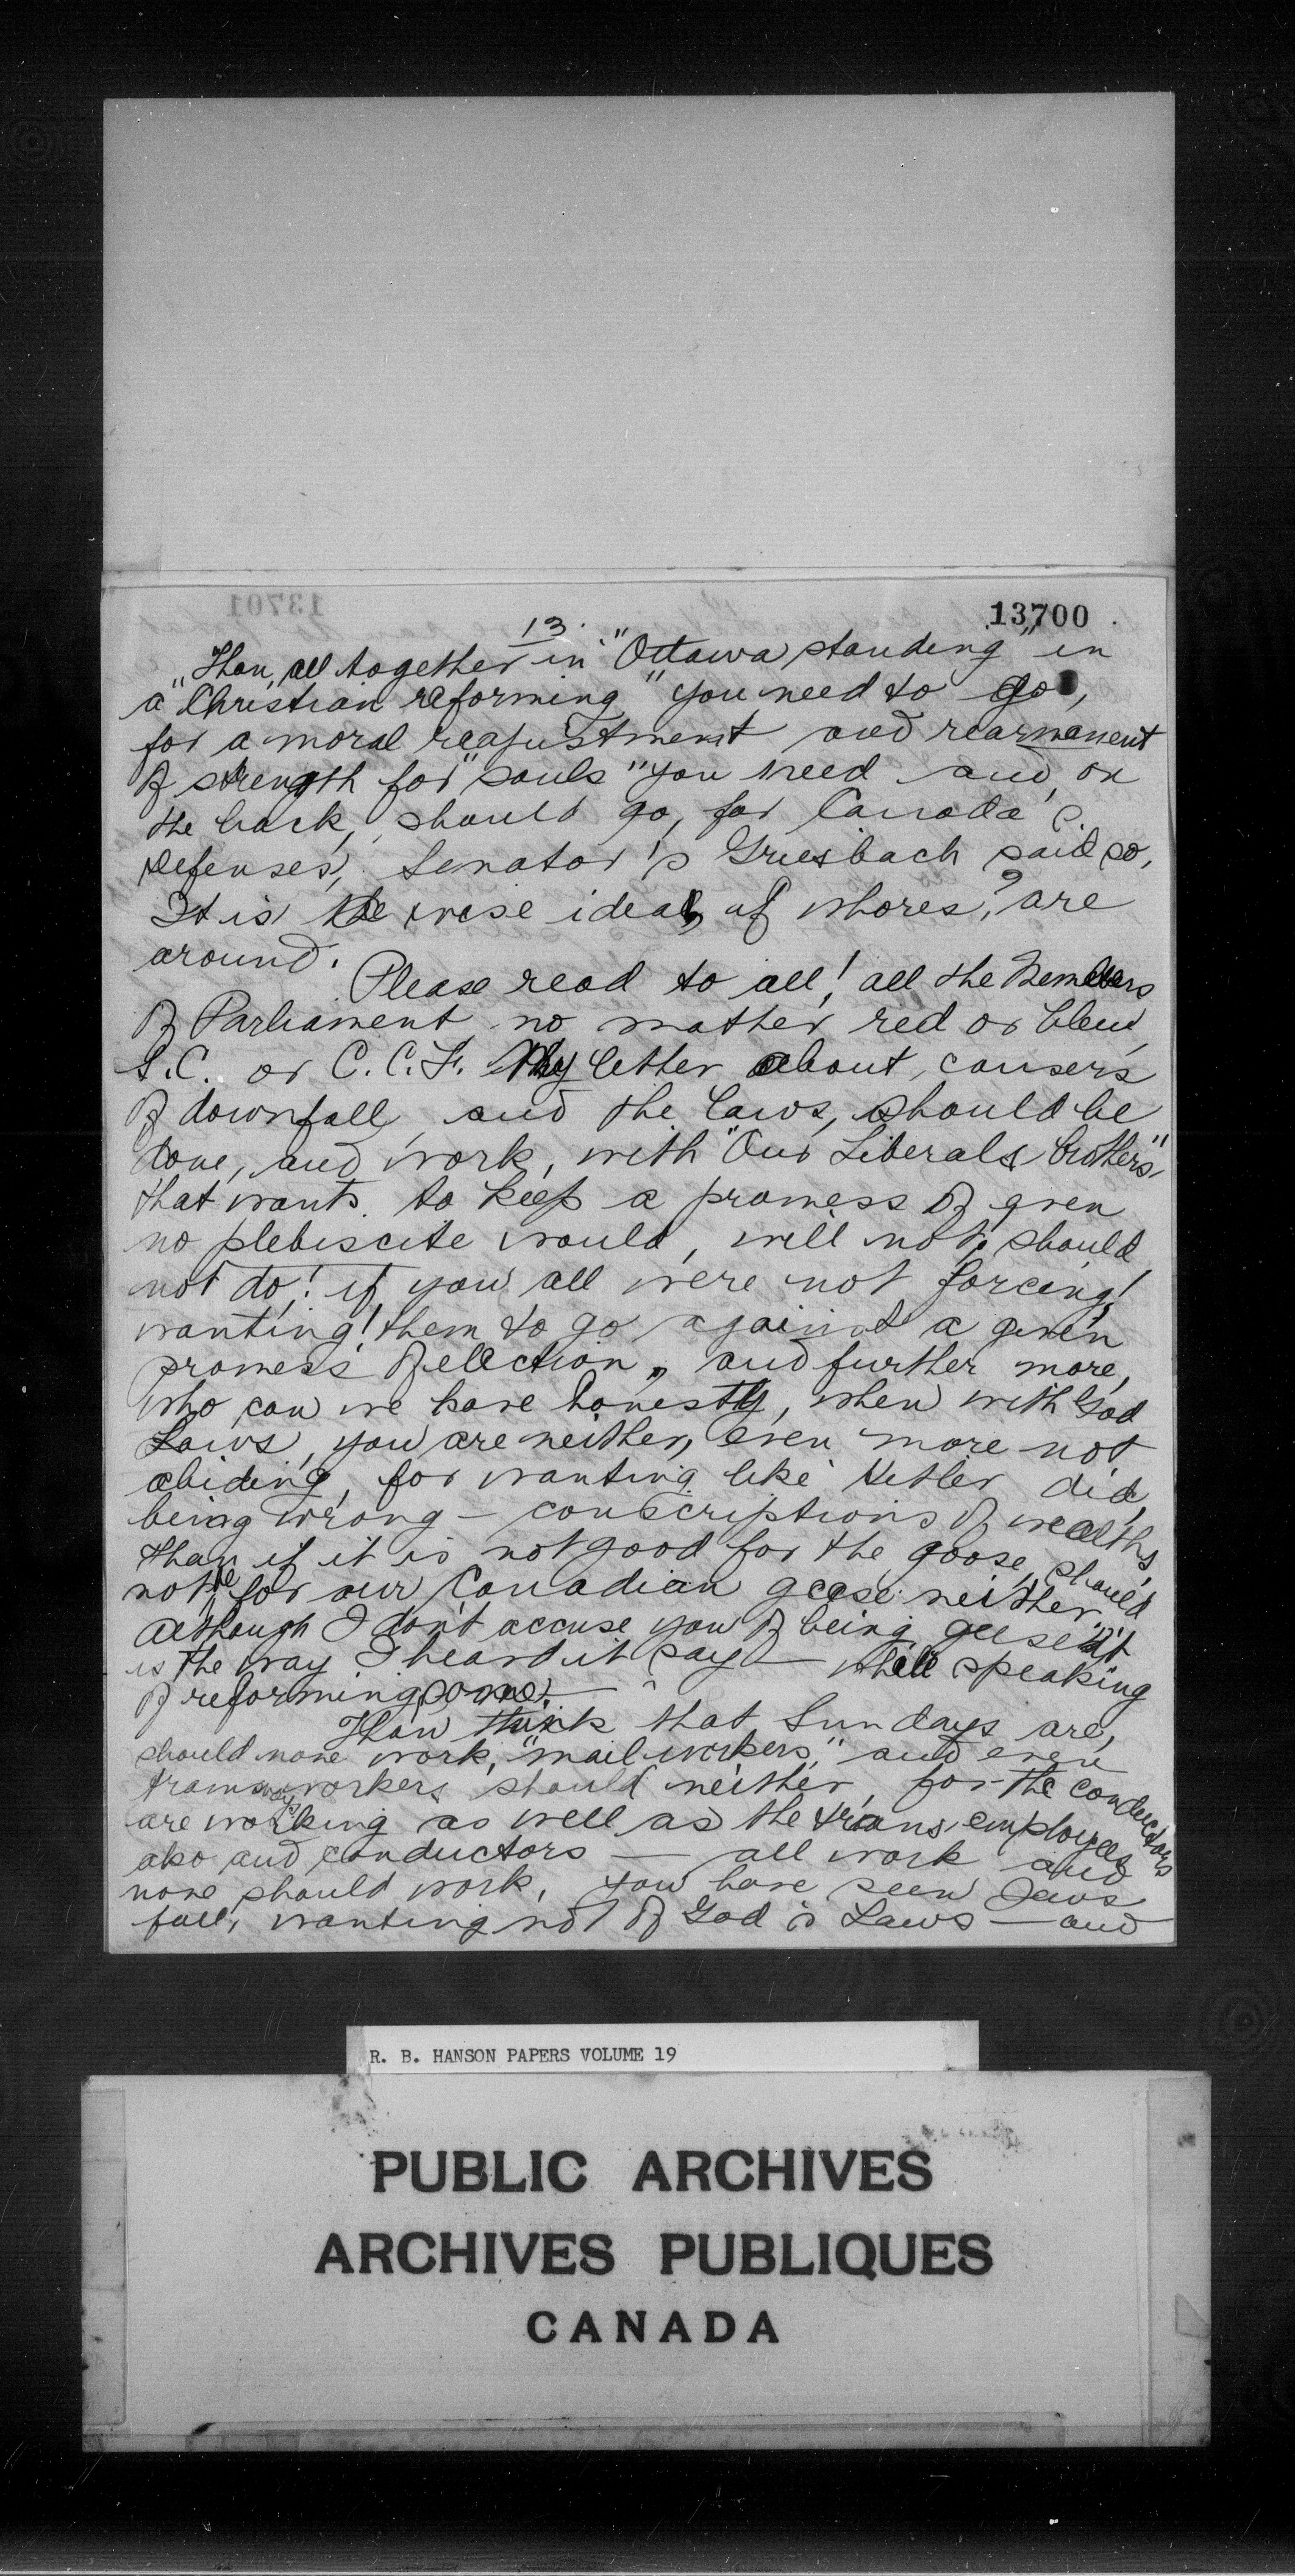 13701
13700
13.
"Than, all together in "Ottawa standing" in
a "Christian reforming" you need to go,
for a moral reajustment and rearmanent
of strength for "souls" you need and, on
the back, should go, for Canada
Defenses, Senator's Griesbach said so,
It is the wise ideal, of whores,? are
around.
Please read to all! all the Members
of Parliament no mather red or bleu
S.C. or C.C.F. My letter about, causers
of downfall and the laws, should be
done, and work, with "Our Liberals brothers"
that wants to keep a promess of given
no plebiscite would, will not, should
not do! if you all were not forcing!
wanting! them to go against a given
promess of election, and further more,
who can we have honesty, when with God
Laws, you are neither, even more not
abiding, for wanting like Hitler did,
being wrong - conscriptions of wealths,
than if it is not good for the goose, should
not be for our Canadian geese neither
although I don't accuse you of being geese it
is the way I heard it say — while speaking
of reforming some. —
Than think that Sundays are,
should none work, "mail workers," and even
tramways workers should neither, for the conductors
are working as well as the trans employees
also and conductors — all work and
none should work. you have seen Jews
fall, wanting not of God's Laws — and
R. B. HANSON PAPERS VOLUME 19
PUBLIC ARCHIVES
ARCHIVES PUBLIQUES
CANADA